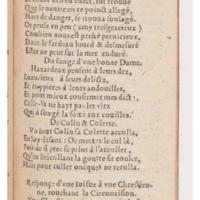 Que le nauire en ce poinct allegé,
Hors de danger, se trouua soulagé.
Or puis vn peu (amy tresgracieux)
Combien nous est peché pernicieux,
Dont le fardeau lourd & desmesuré
Estre ne peut sur la mer enduré.
Du songe d'vne bonne Dame.
Hazardeux pensere à leurs dez,
Luxurieux à leurs delictz,
Et trippieres à leurs andouilles,
Et pour mieux confermer mes dict
Celle-là ne hayt pas les vitz
Qui à songé la nuict aux couilles.
De Colin & Colette.
Vn iour Colin sa Colette accolla,
En luy disant: Or mettez le cul là,
Puis de si pres se print à l'accoller,
Qu'en bricollant la goutte fit couler,
Mais pour culler oncques ne reculla.
Responce d'vne iuifue à vne Chrestienne,
touchant la Circoncision.